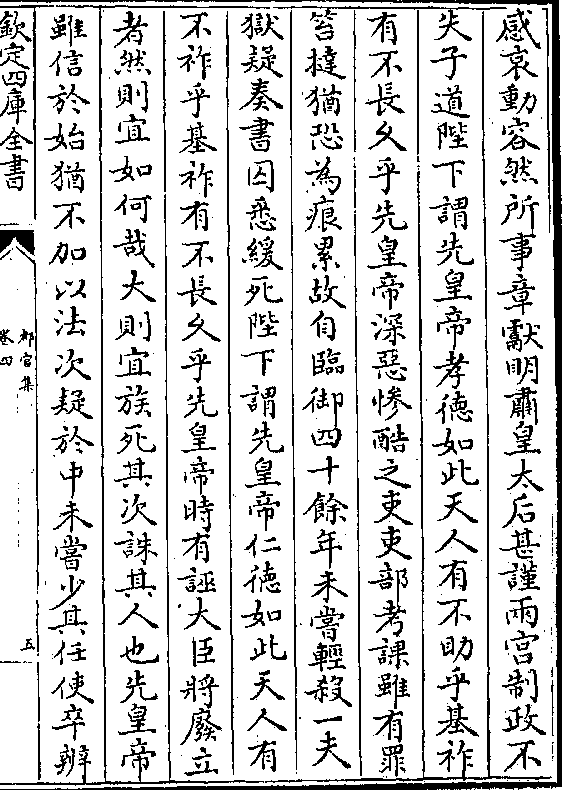 感哀動容然所事章獻明肅皇太后甚謹兩宮制政不
失子道陛下謂先皇帝孝德如此天人有不助乎基祚
有不長久乎先皇帝深惡慘酷之吏吏部考課雖有罪
笞撻猶恐為痕累故自臨御四十餘年未嘗輕殺一夫
獄疑奏書囚悉緩死陛下謂先皇帝仁徳如此天人有
不祚乎基祚有不長久乎先皇帝時有誣大臣將廢立
者然則宜如何哉大則宜族死其次誅其人也先皇帝
雖信於始猶不加以法次疑於中未嘗少其任使卒辨
欽定四庫全書
都官集
卷四
五